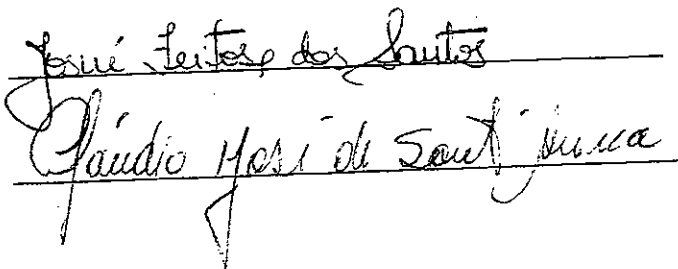 Josué Feitosa dos Santos
Cláudio José de Sant'Anna